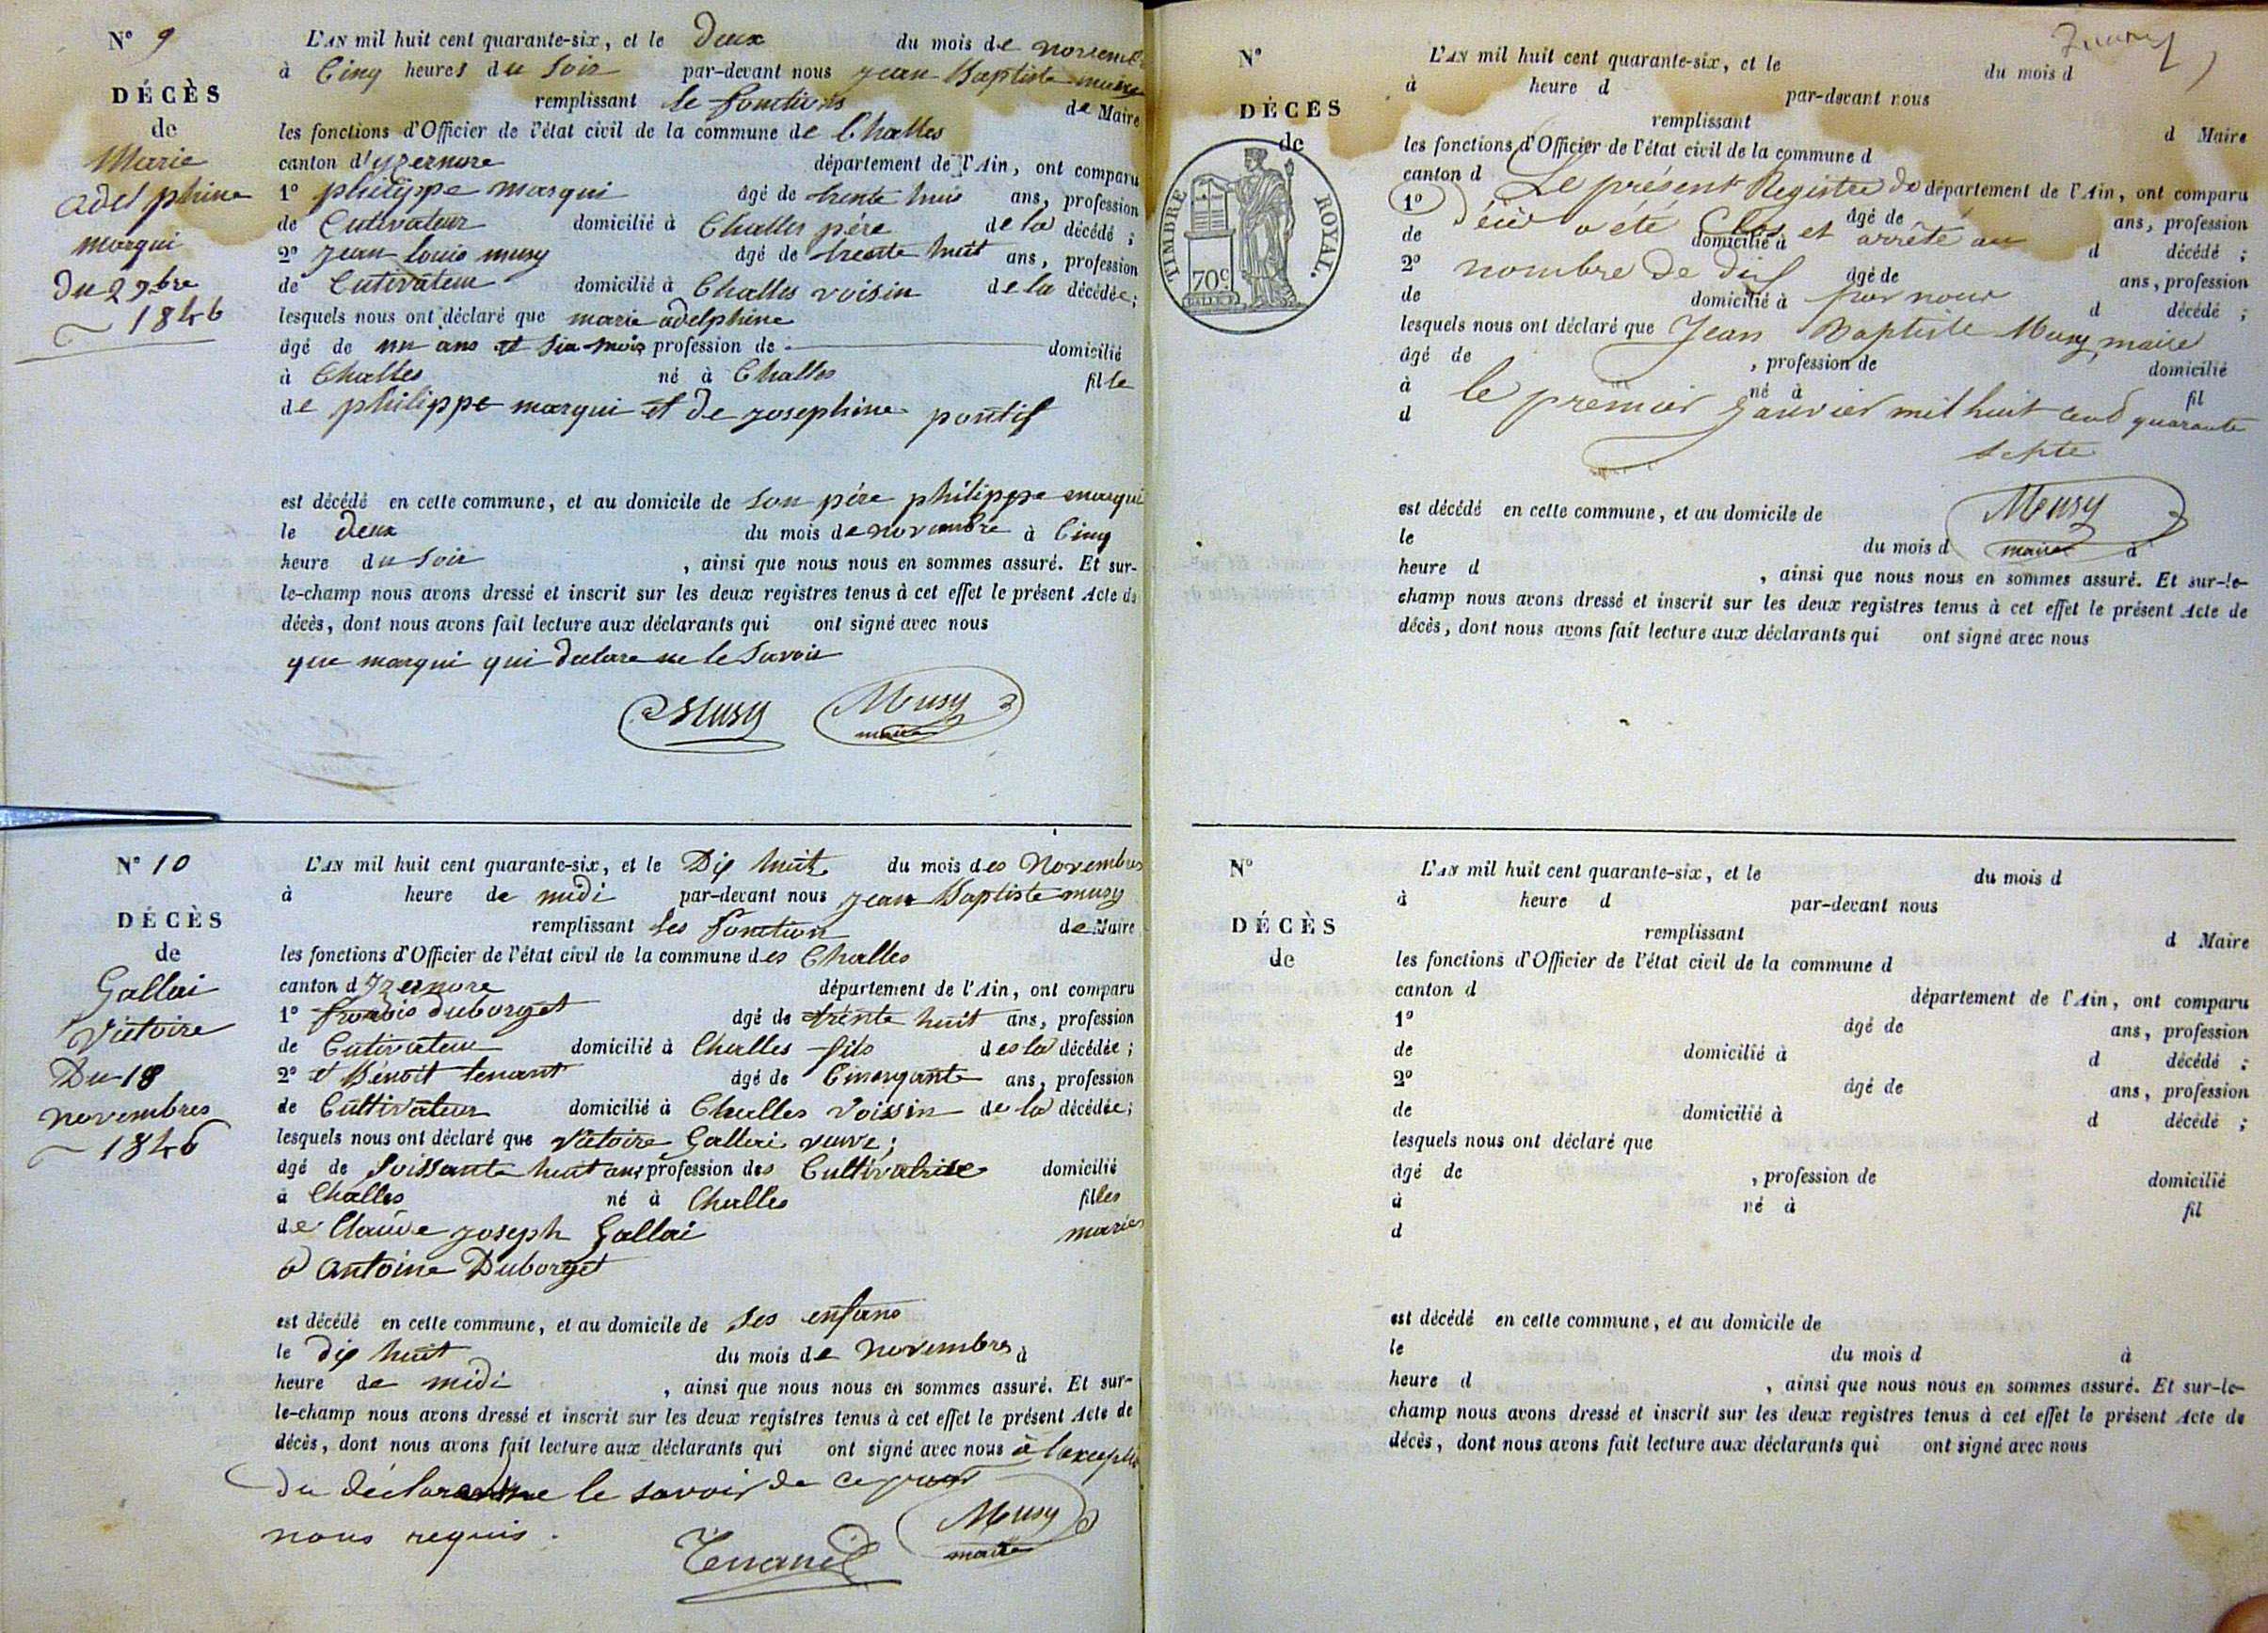 N° 9
DÉCÈS
de
Marie
adelphine
marqui
Du 2 9bre
1846
L'AN mil huit cent quarante-six, et le Deux du mois de novembre
à Cinq heures du Soir par-devant nous jean Baptiste musy
remplissant le fonctions de Maire
les fonctions d'Officier de l'état civil de la commune de Challes
canton d'yzernore département de l'Ain, ont comparu
1° philippe marqui âgé de trente huis ans, profession
de Cutivateur domicilié à Challes pére de la décédé ;
2° jean louis musy âgé de trente huit ans, profession
de Cutivateur domicilié à Challes voisin de la décédée ;
lesquels nous ont déclaré que marie adelphine
âgé de un ans et Six mois profession de domicilié
à Challes né à Challes fille
de philippe marqui et de josephine pontif
est décédé en cette commune, et au domicile de son pére philippe marqui
le deux du mois de novembre à Cinq
heure du Soir , ainsi que nous nous en sommes assuré. Et sur-
le-champ nous avons dressé et inscrit sur les deux registres tenus à cet effet le présent Acte de
décès, dont nous avons fait lecture aux déclarants qui ont signé avec nous
que marqui qui declare ne le Savoir
Musy Musy
maire
N° 10
DÉCÈS
de
Gallai
Victoire
Du 18
novembres
1846
L'AN mil huit cent quarante-six, et le Dix huit du mois des Novembres
à heure de midi par-devant nous jean Baptiste musy
remplissant les fonction de Maire
les fonctions d'Officier de l'état civil de la commune des Challes
canton d'Izernore département de l'Ain, ont comparu
1° françois duborget âgé de trente huit ans, profession
de Cutivateur domicilié à Challes fils des la décédée ;
2° et Benoit tenant âgé de Cinquante ans, profession
de Cultivateur domicilié à Challes Voissin de la décédée ;
lesquels nous ont déclaré que Victoire Gallai veuve ;
âgé de Soissante huit ans profession des Cultivatrice domicilié
à Challes né à Challes filles
de Claude joseph Gallai mariés
a antoine Duborget
est décédé en cette commune, et au domicile de ses enfans
le dix huit du mois de Novembres à
heure de midi , ainsi que nous nous en sommes assuré. Et sur-
le-champ nous avons dressé et inscrit sur les deux registres tenus à cet effet le présent Acte de
décès, dont nous avons fait lecture aux déclarants qui ont signé avec nous à l'excepté
du le savoir de ce
nous requis.
Tenand Musy
maire
N°
DÉCÈS
de
TIMBRE ROYAL.
70c
L'AN mil huit cent quarante-six, et le du mois d
à heure d par-devant nous
remplissant d Maire
les fonctions d'Officier de l'état civil de la commune d
canton d Le présent Registre de département de l'Ain, ont comparu
1° décès a été Clos et arrêté au âgé de ans, profession
de domicilié à d décédé ;
2° nombre de dix âgé de ans, profession
de domicilié à par nous d décédé ;
lesquels nous ont déclaré que Jean Baptiste Musy, maire
âgé de , profession de domicilié
à le premier né à fil
d janvier mil huit cent quarante
septe
Musy
maire
est décédé en cette commune, et au domicile de
le du mois d à
heure d , ainsi que nous nous en sommes assuré. Et sur-le-
champ nous avons dressé et inscrit sur les deux registres tenus à cet effet le présent Acte de
décès, dont nous avons fait lecture aux déclarants qui ont signé avec nous
N°
DÉCÈS
de
L'AN mil huit cent quarante-six, et le du mois d
à heure d par-devant nous
remplissant d Maire
les fonctions d'Officier de l'état civil de la commune d
canton d département de l'Ain, ont comparu
1° âgé de ans, profession
de domicilié à d décédé ;
2° âgé de ans, profession
de domicilié à d décédé ;
lesquels nous ont déclaré que
âgé de , profession de domicilié
à né à fil
d
est décédé en cette commune, et au domicile de
le du mois d à
heure d , ainsi que nous nous en sommes assuré. Et sur-le-
champ nous avons dressé et inscrit sur les deux registres tenus à cet effet le présent Acte de
décès, dont nous avons fait lecture aux déclarants qui ont signé avec nous